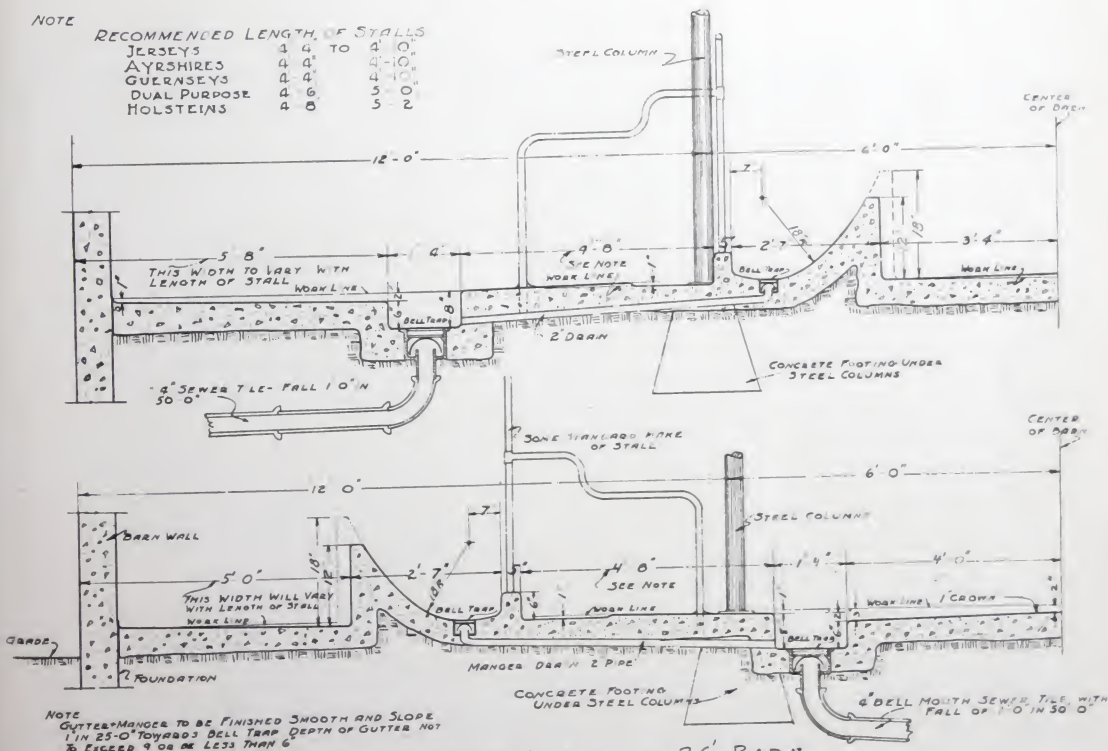 NOTE
RECOMMENDED LENGTH OF STALLS
JERSEYS 4 4 TO 4' 0"
AYRSHIRES 4 4" 4'-10"
GUERNSEYS 4 4" 4'-10"
DUAL PURPOSE 4 6 5 0"
HOLSTEINS 4 8 5 2
STEEL COLUMN
CENTER
OF
12'-0"
6'-0"
7"
18"R
12"
18"
5' 8"
1' 4"
4'-8"
5"
2'-7"
3'-4"
THIS WIDTH TO VARY WITH
LENGTH OF STALL
WORK LINE
SEE NOTE
WORK LINE
BELL TRAP
WORK LINE
BELL TRAP
8"
2" DRAIN
CONCRETE FOOTING UNDER
STEEL COLUMNS
4" SEWER T LE- FALL 1 0" N
50-0"
SOME STANDARD MAKE
OF STALL
CENTER
OF BARN
12' 0"
6'-0"
7
STEEL COLUMNS
BARN WALL
18"
12"
5'-0"
2'-7"
18"R
5"
4' 8"
1'-4"
4'-0"
SEE NOTE
THIS WIDTH WILL VARY
WITH LENGTH OF STALL
WORK LINE
BELL TRAP
6"
1"
WORK LINE
WORK LINE
1" CROWN
2"
BELL TRAP
GRADE
FOUNDATION
MANGER DRAIN 2 PIPE
CONCRETE FOOTING
UNDER STEEL COLUMNS
4" BELL MOUTH SEWER TILE, WITH
FALL OF 1'-0 IN 50 0"
NOTE
GUTTER+MANGER TO BE FINISHED SMOOTH AND SLOPE
1" IN 25-0" TOWARDS BELL TRAP DEPTH OF GUTTER NOT
TO EXCEED 9 OR BE LESS THAN 6"
36' BARN